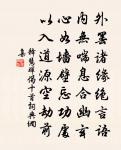 外罷諸緣絕言語
內無喘息合幽玄
心如牆壁忘功處
以入道源空劫前
釋慧暉偈十首詞典網
集